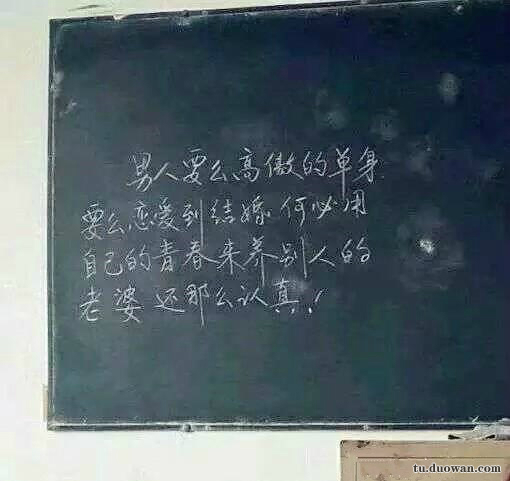 男人要么高傲的单身
要么恋爱到结婚何必用
自己的青春来养别人的
老婆还那么认真！
tu.duowan.com